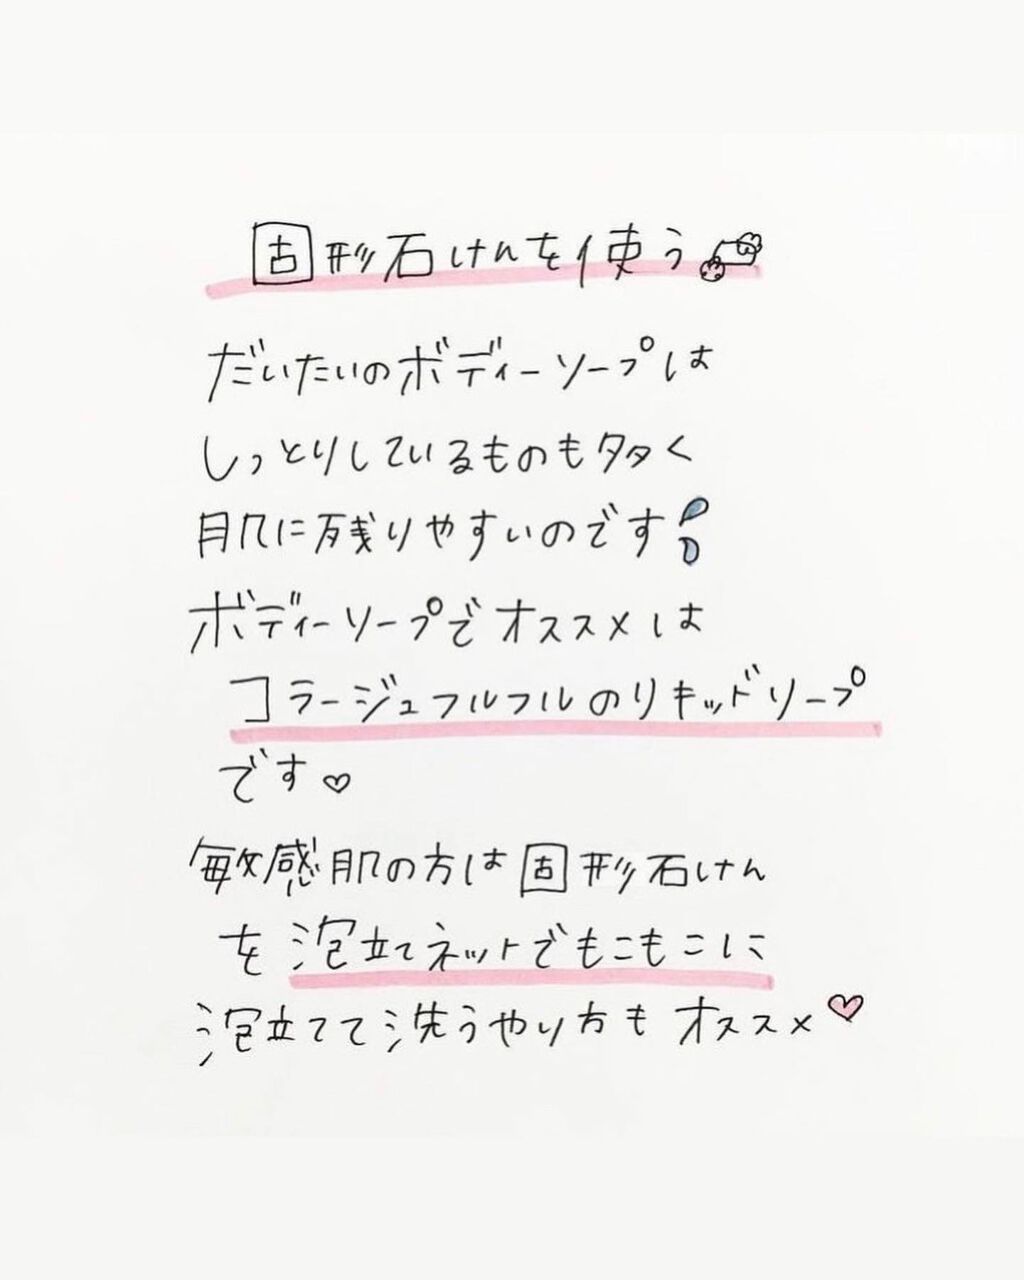 固形石けんを使う
だいたいのボディーソープは
しっとりしているものも多く
肌に残りやすいのです
ボディーソープでオススメは
コラージュフルフルのリキッドソープ
です♡
敏感肌の方は固形石けん
を泡立てネットでもこもこに
泡立てて洗うやり方もオススメ♡